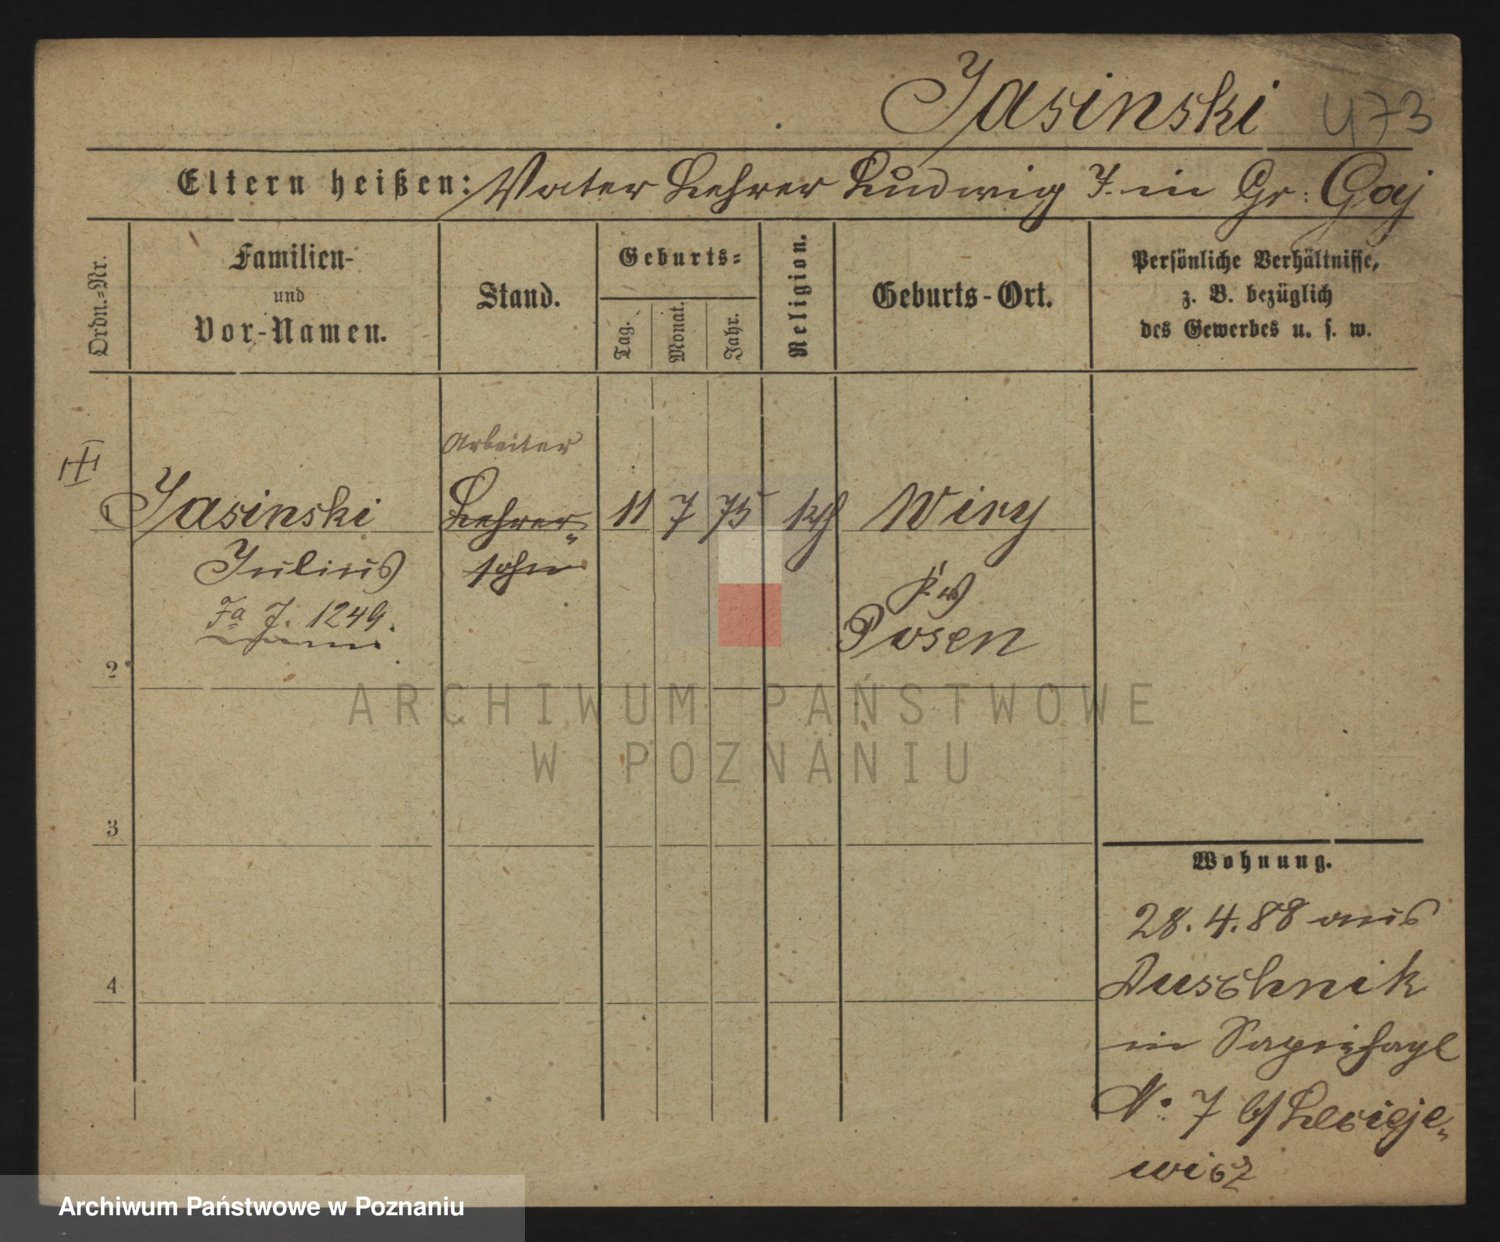 Jasinski 473
Eltern heißen: Vater Lehrer Ludwig J. in Gr: Gaj
Ordn.-Nr.
Familien-
und
Vor-Namen.
Stand.
Geburts-
Tag.
Monat.
Jahr.
Religion.
Geburts-Ort.
Persönliche Verhältnisse,
z. B. bezüglich
des Gewerbes u. s. w.
Arbeiter
1 Jasinski Lehrer- 11 7 75 kth Wiry
Julius sohn
Fa J. 1249. Krs
Posen
2
3
4
Wohnung.
28. 4. 88 aus
Duschnik
in Sapiehapl
No. 7 b/
wicz
ARCHIWUM PAŃSTWOWE
W POZNANIU
Archiwum Państwowe w Poznaniu